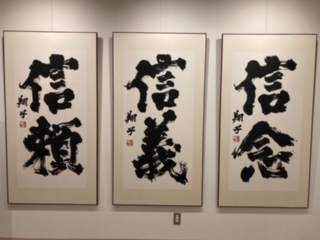 信頼
翔子
信義
翔子
信念
翔子